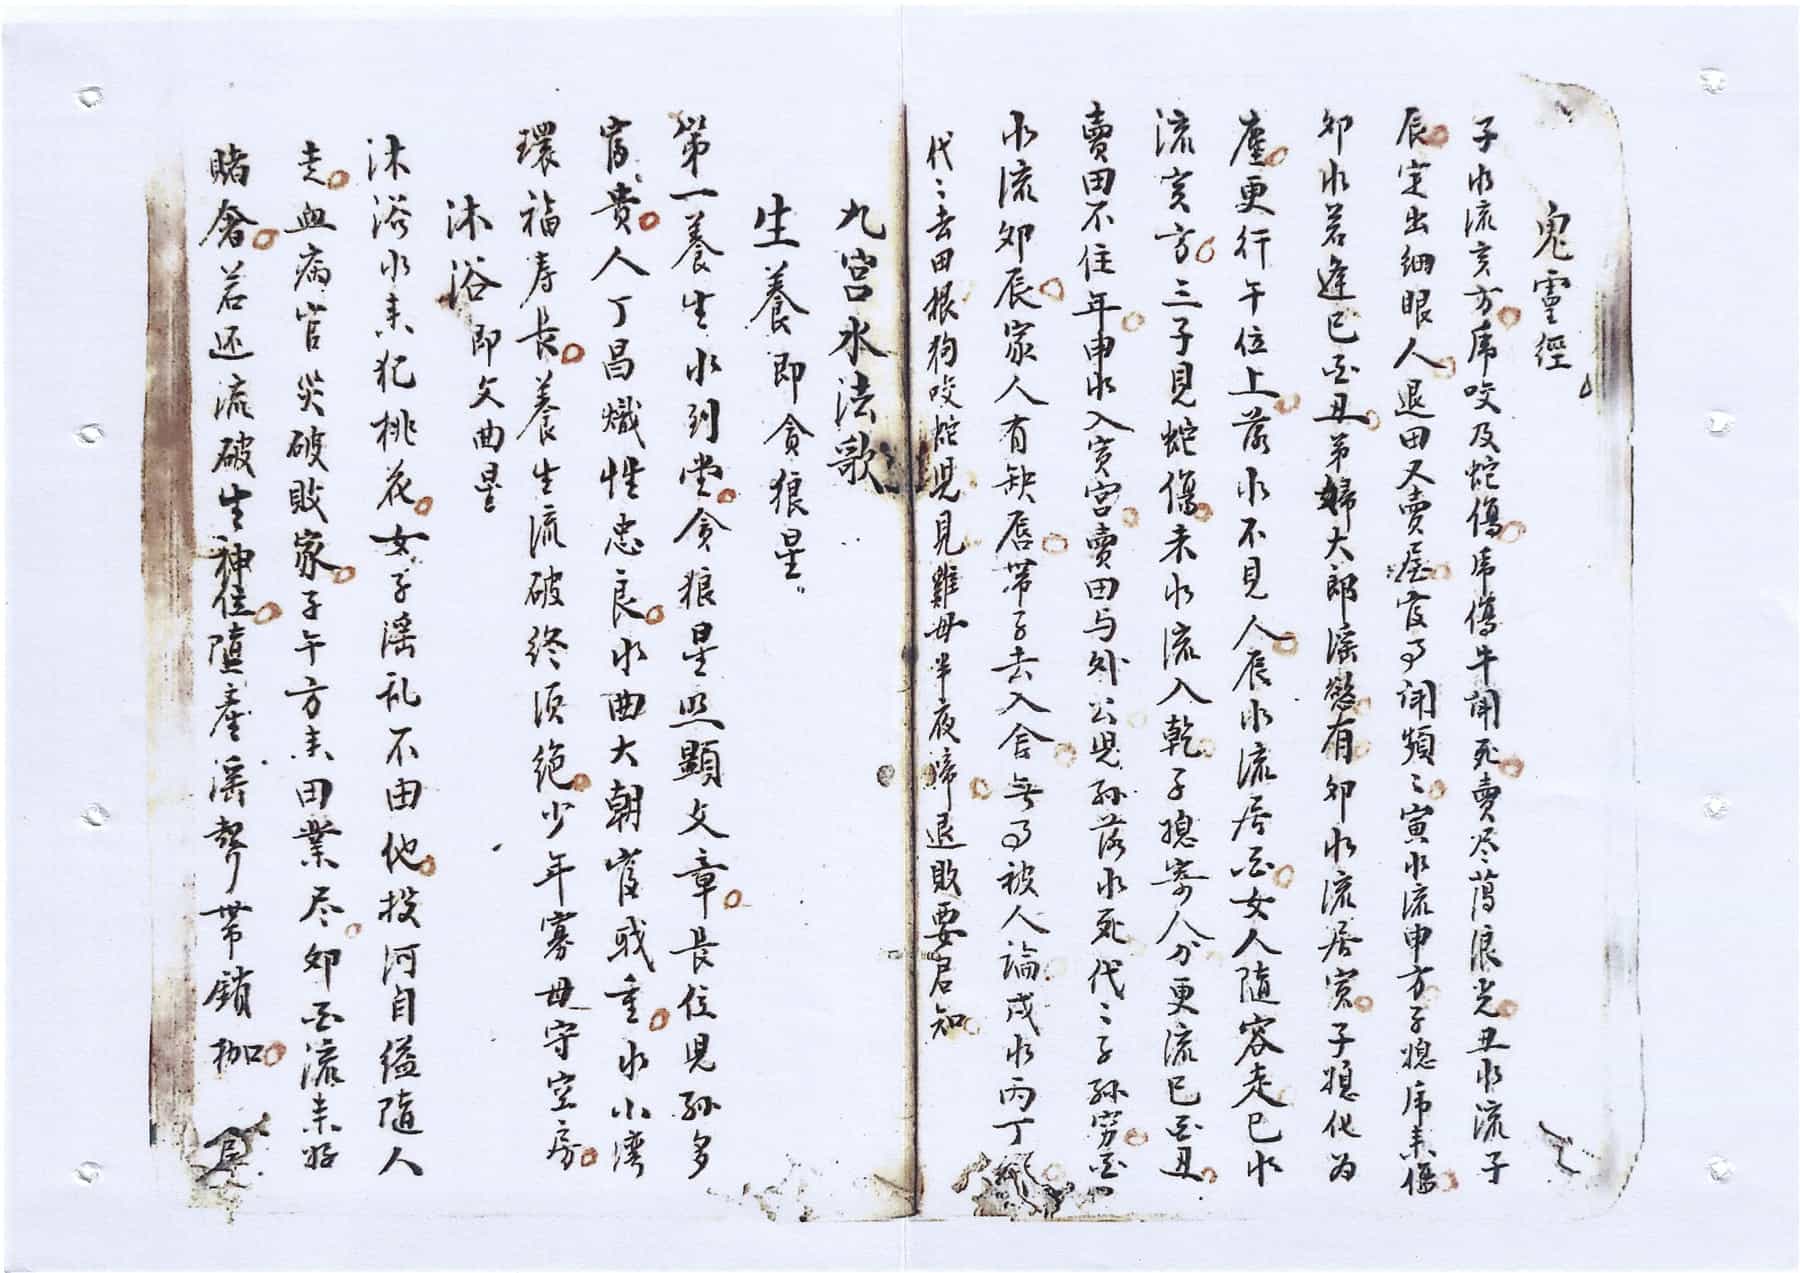 鬼靈經
子水流亥方虎咬及蛇傷虎傷牛鬪死賣尽蕩浪光丑水流子
辰定出細眼人退田又賣屋官事鬪頻〻寅水流申方子媳虎来傷
卯水若逢巳酉丑弟婦大郎淫慾有卯水流居寅子媳化为
塵更行午位上落水不見人辰水流居酉女人隨客走巳水
流亥方三子見蛇傷未水流入乾子媳寄人分更流巳酉丑
賣田不住年申水入寅宮賣田与外公児孫落水死代〻子孫穷酉
水流卯辰家人有缺唇带子去入舍無事被人論戌水丙丁
代〻去田根狗咬蛇児見雞母半夜啼退敗要君知
九宮水法歌
生養即貪狼星
第一養生水到堂貪狼星照顯文章長位児孫多
富貴人丁昌熾性忠良水曲大朝官職重水小湾
環福寿長養生流破終須绝少年寡母守空房
沐浴即文曲星
沐浴水来犯桃花女子淫乱不由他投河自缢隨人
走血病官災破敗家子午方来田業尽卯酉流来好
賭奢若还流破生神位墮產淫聲带鎖枷